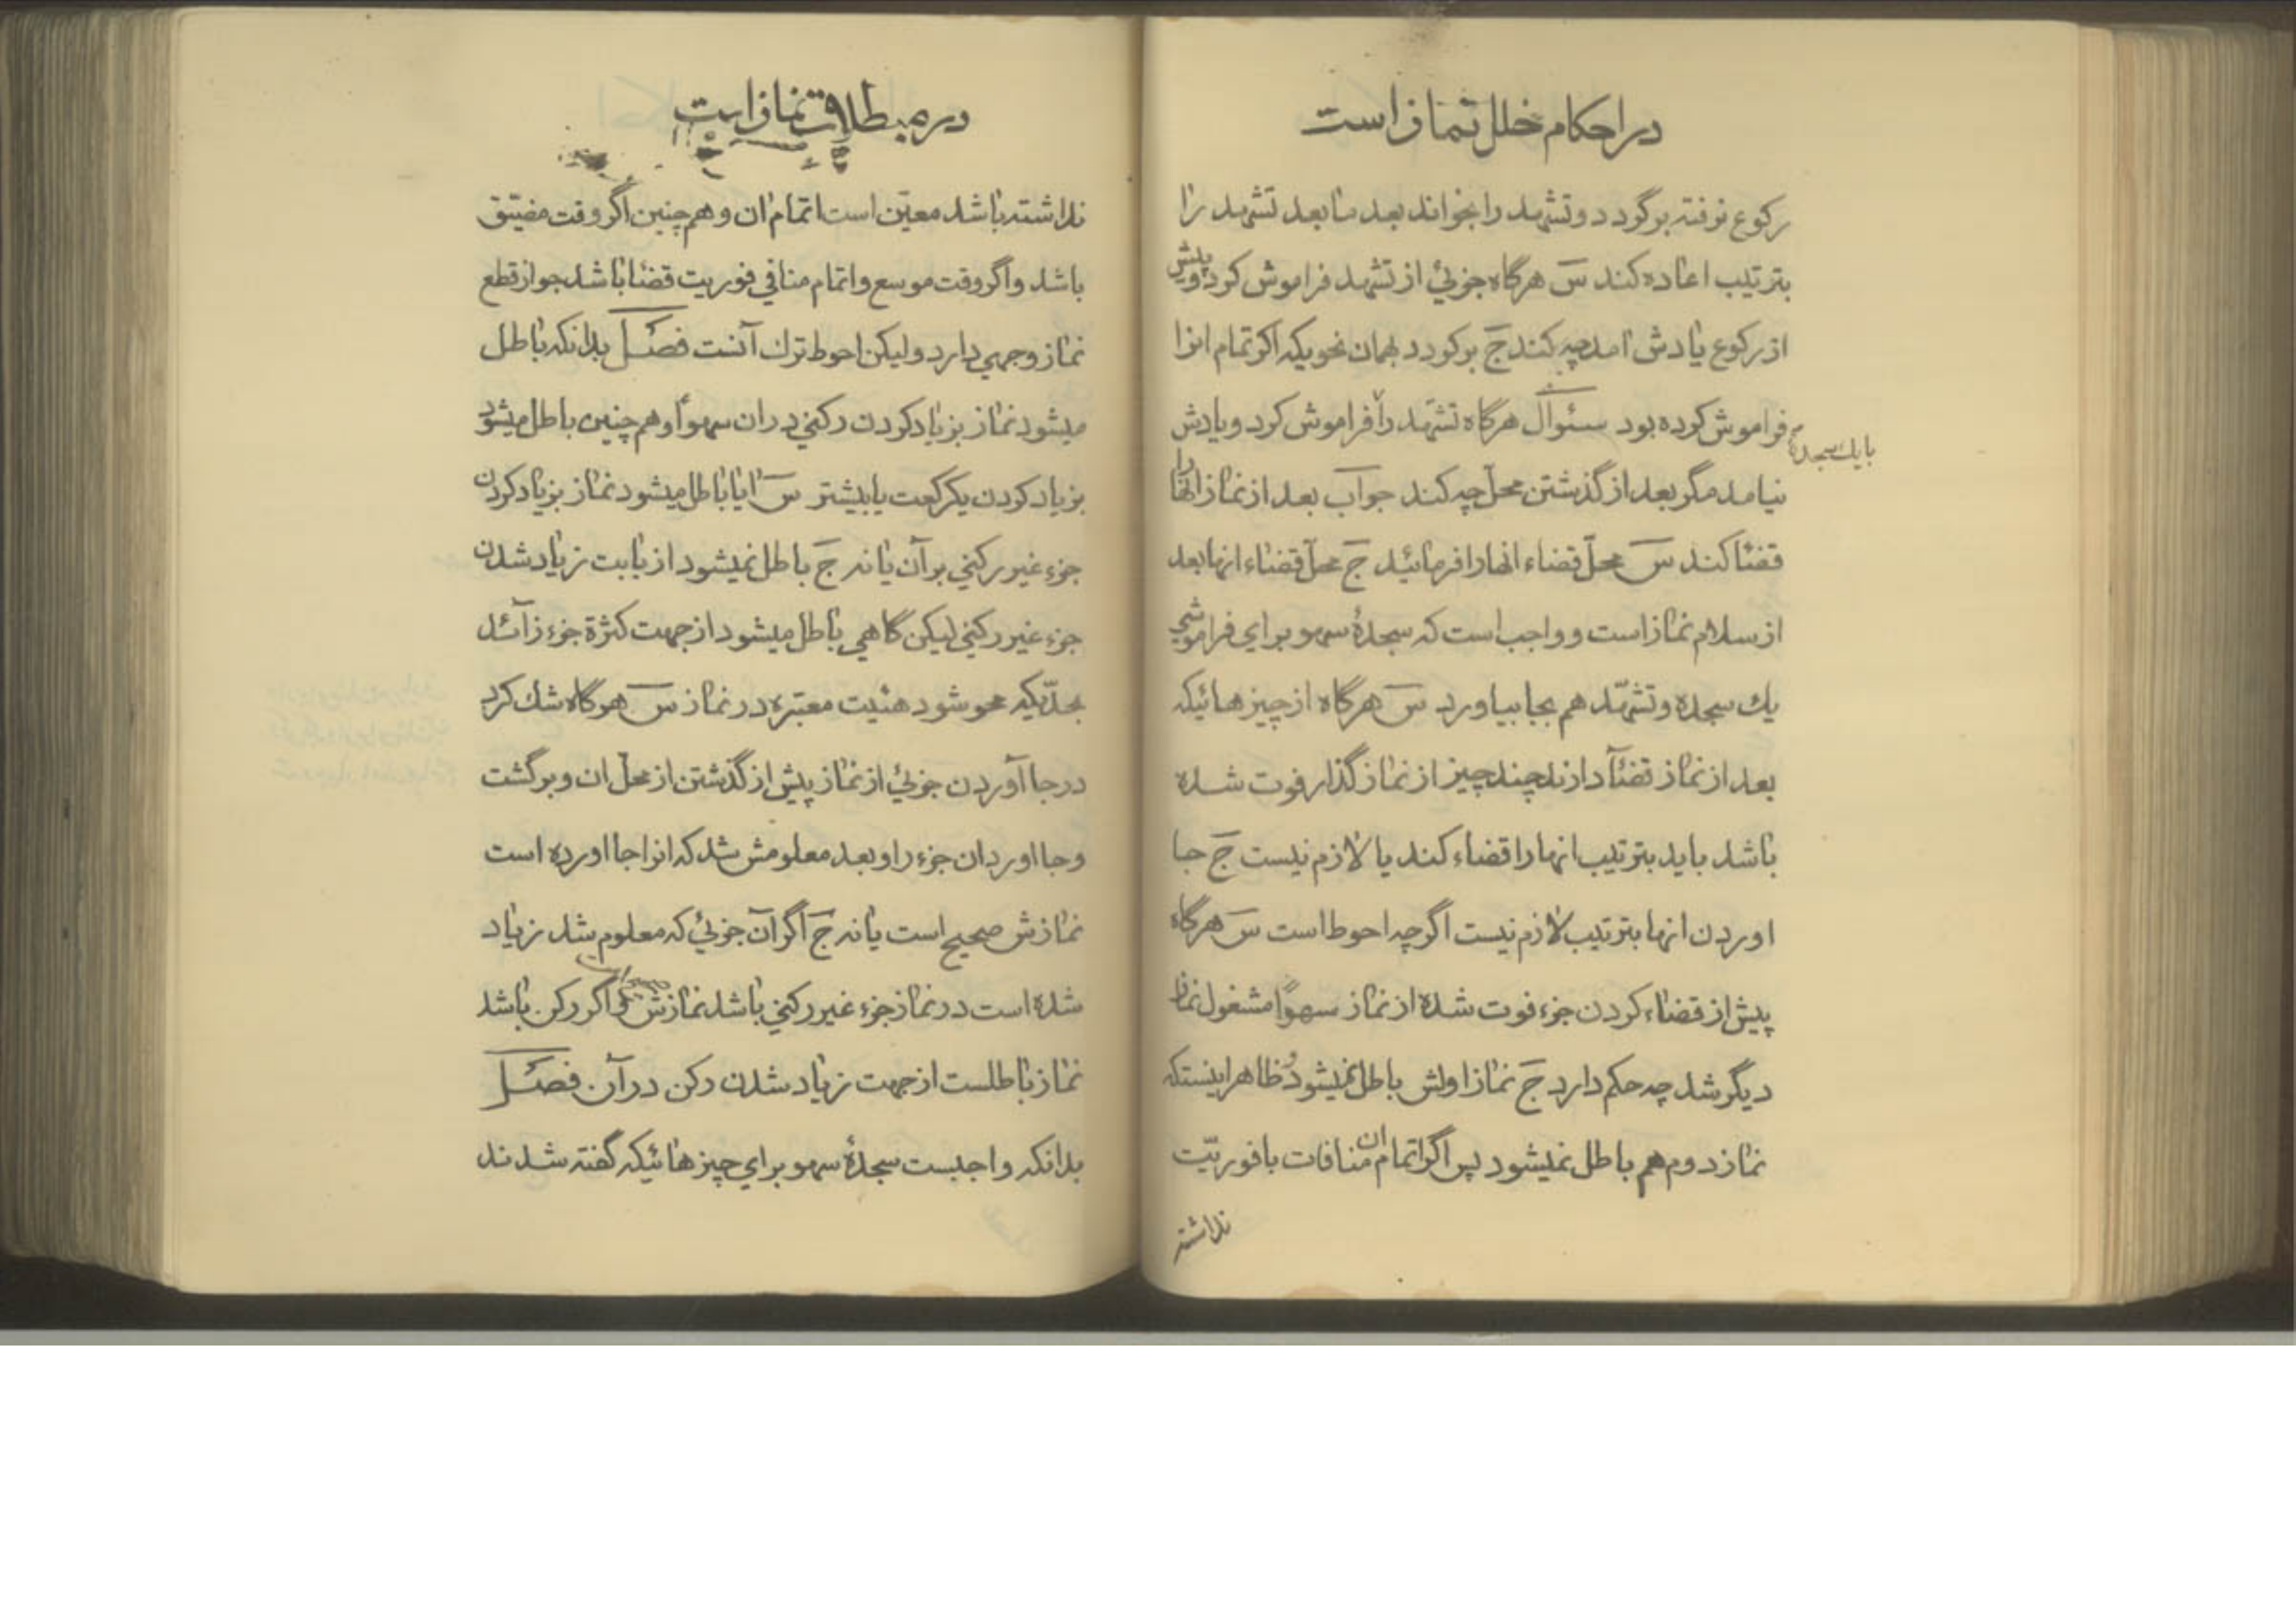 در احکام خلل نماز است
رکوع نرفته برگردد و تشهد را بخواند بعد ما بعد تشهد را
بترتیب اعاده کند سَ هرگاه جزئي از تشهد فراموش کرد و پیش
از رکوع یادش امد چه کند جَ برگردد بهمان نحویکه اگر تمام انرا
فراموش کرده بود سئوال هرگاه تشهّد را فراموش کرد و یادش
با یك سجده
نیامد مگر بعد از گذشتن محلّ چه کند جواب بعد از نماز انها را
قضا کند سَ محلّ قضاء انها را فرمائید جَ محلّ قضاء انها بعد
از سلام نماز است و واجب است که سجدهٔ سهو برای فراموشي
یك سجده و تشهّد هم بجا بیاورد سَ هرگاه از چیزهائیکه
بعد از نماز قضآ دارند چند چیز از نماز گذار فوت شده
باشد باید بترتیب انها را قضاء کند یا لازم نیست جَ جا
اوردن انها بترتیب لازم نیست اگرچه احوط است سَ هرگاه
پیش از قضاء کردن جزء فوت شده از نماز سهوًا مشغول نماز
دیگر شد چه حکم دارد جَ نماز اولش باطل نمیشود و ظاهر اینستکه
نماز دوم هم باطل نمیشود پس اگر اتمام ان منافات با فوریّت
نداشته
در مبطلات نماز است
نداشته باشد معیّن است اتمام ان و هم چنین اگر وقت مضیّق
باشد و اگر وقت موسع و اتمام منافي فوریت قضا باشد جواز قطع
نماز وجهي دارد و لیکن احوط ترك آنست فصل بدانکه باطل
میشود نماز بزیاد کردن رکني در ان سهواً و هم چنین باطل میشود
بزیاد کردن یکرکعت یا بیشتر سَ ایا باطل میشود نماز بزیاد کردن
جزء غیر رکني بر آن یا نه جَ باطل نمیشود از بابت زیاد شدن
جزء غیر رکني لیکن گاهي باطل میشود از جهت کثرة جزء زآئد
بحدّیکه محو شود هئیت معتبره در نماز سَ هرگاه شك کرد
در جا آوردن جزئي از نماز پیش از گذشتن از محلّ ان و برگشت
و جا اورد ان جزء را و بعد معلومش شد که انرا جا اورده است
نمازش صحیح است یا نه جَ اگر آن جزئي که معلوم شد زیاد
شده است در نماز جزء غیر رکني باشد نمازش صحیح است و اگر رکن باشد
نماز باطلست از جهت زیاد شدن رکن در آن. فصل
بدانکه واجبست سجدهٔ سهو برای چیزهائیکه گفته شدند